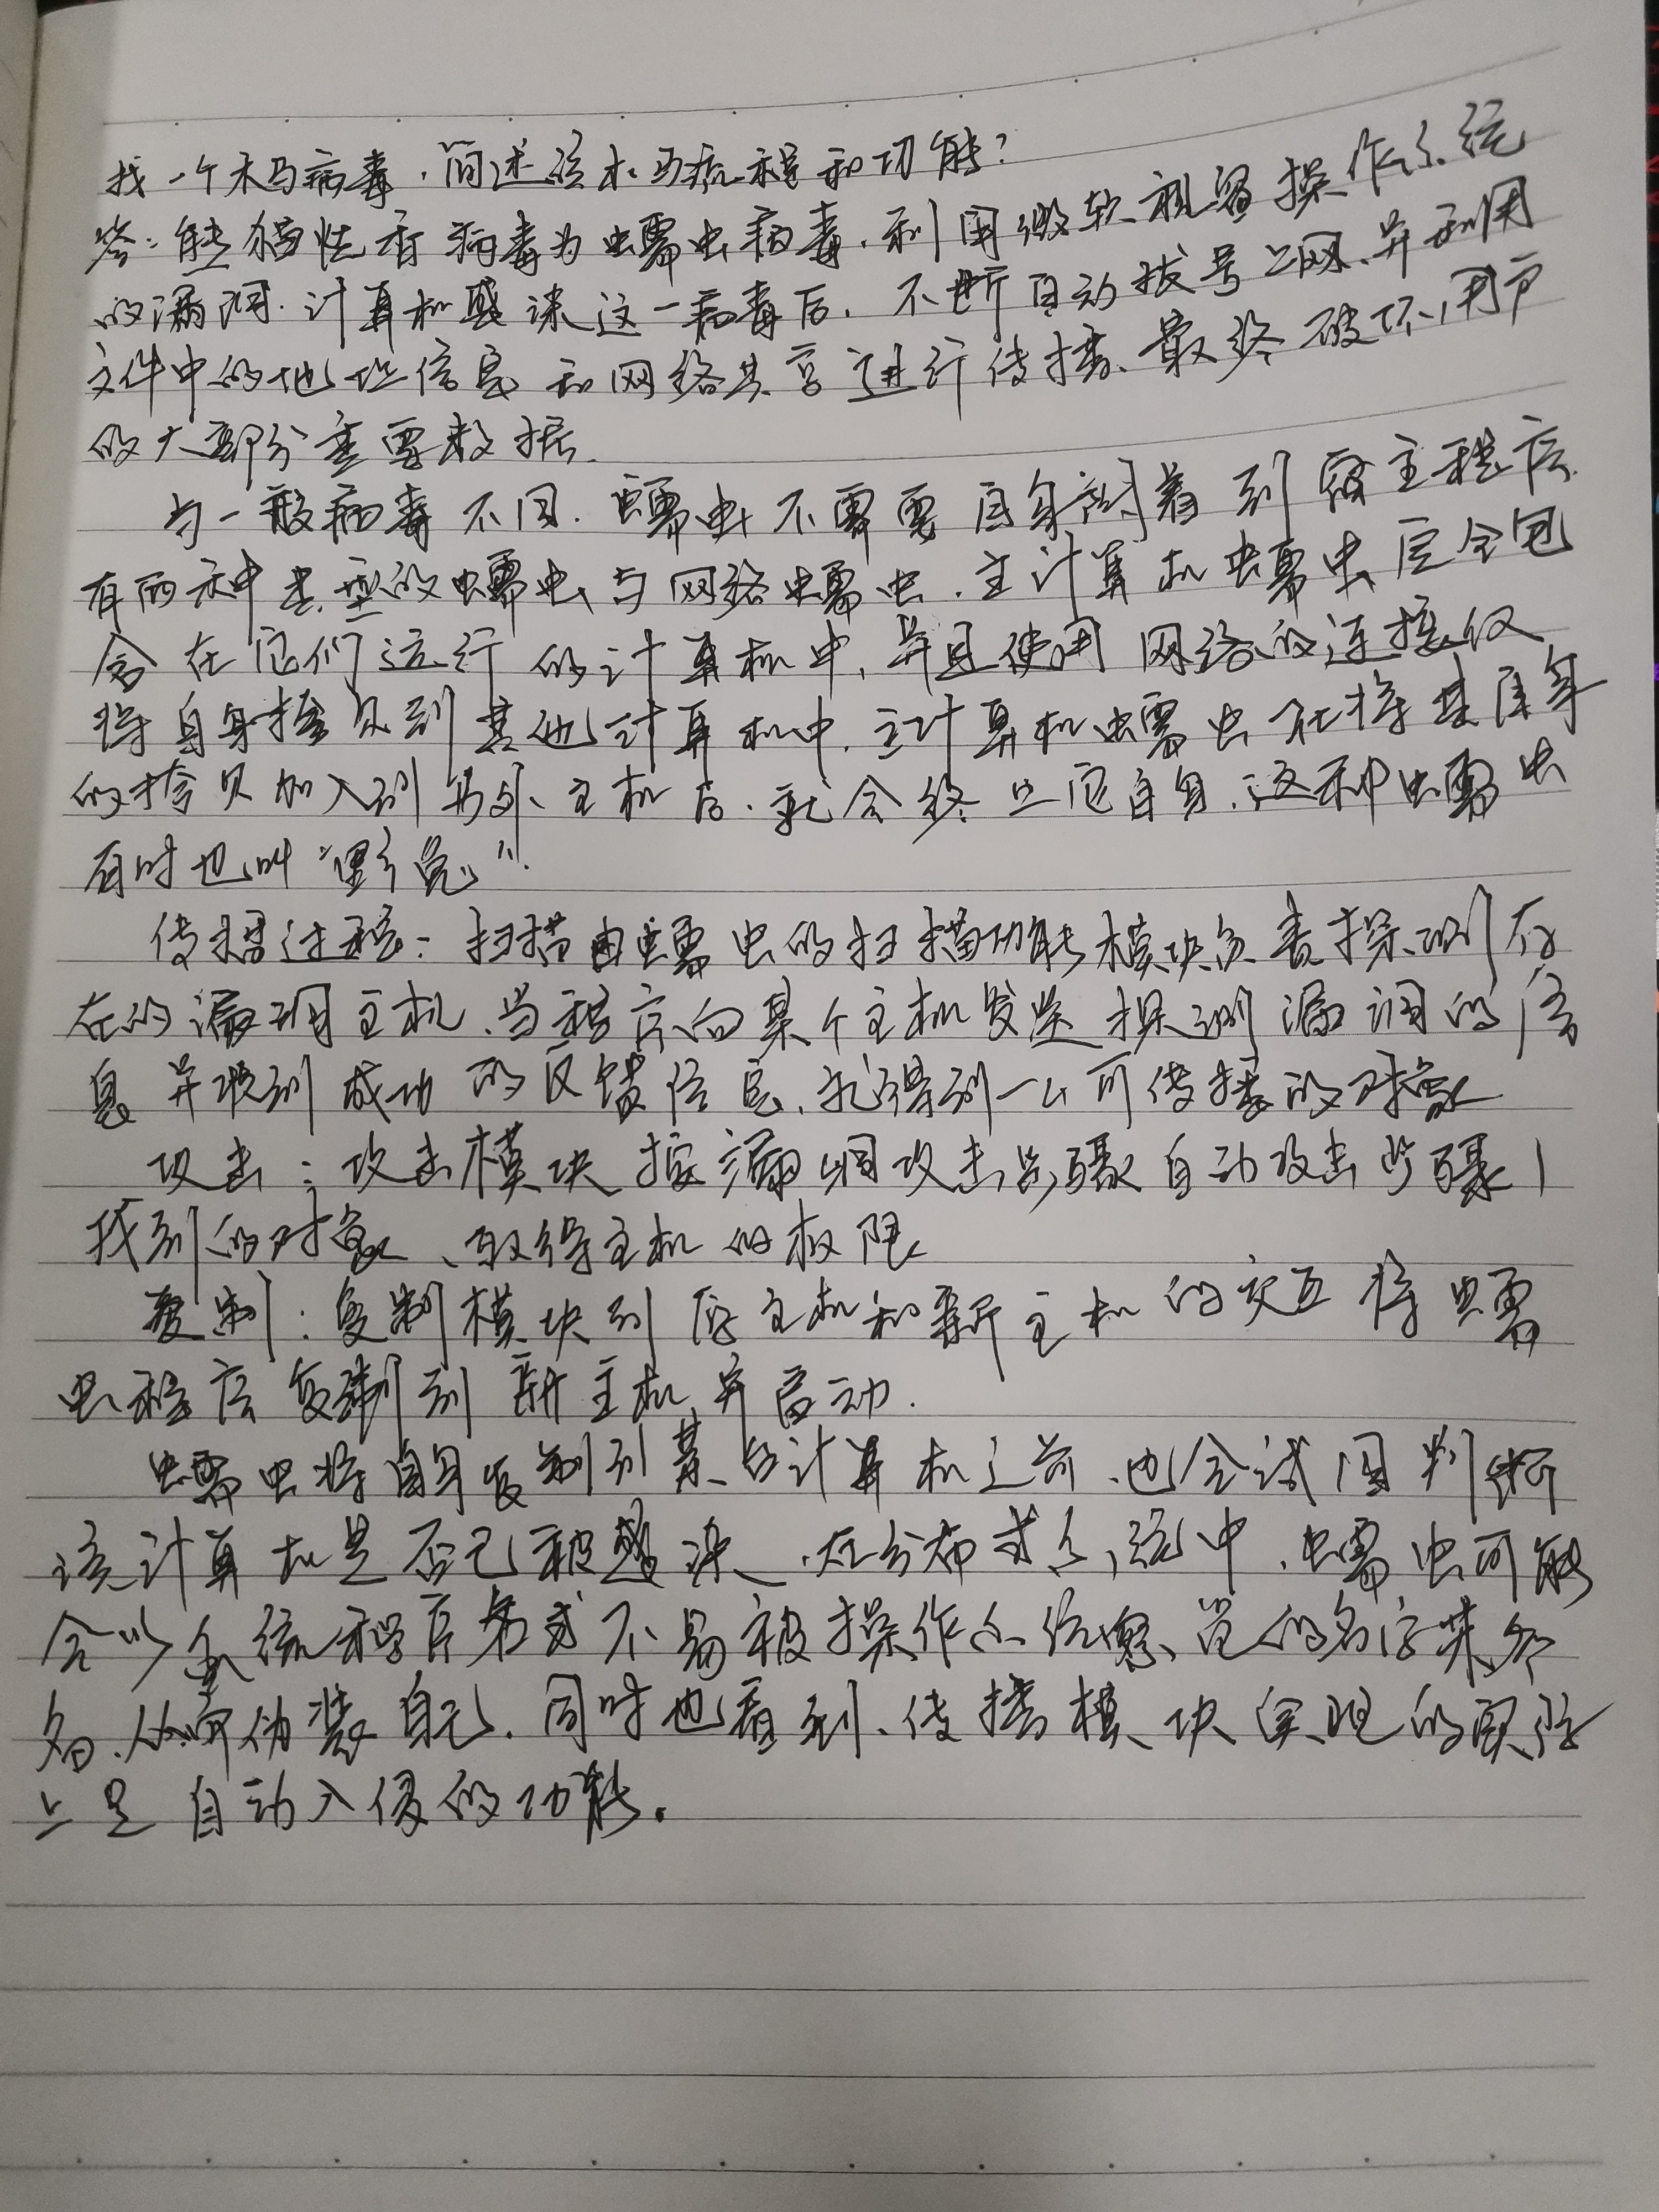 找一个木马病毒，简述该木马流程和功能？
答：熊猫烧香病毒为蠕虫病毒，利用微软视窗操作系统
的漏洞．计算机感染这一病毒后，不断自动拨号上网、并利用
文件中的地址信息和网络共享进行传播、最终破坏用户
的大部分重要数据．
与一般病毒不同．蠕虫不需要自身附着到宿主程序．
有两种类型的蠕虫与网络蠕虫．主计算机蠕虫完全包
含在它们运行的计算机中，并且使用网络的连接仅
将自身拷贝到其他计算机中．主计算机蠕虫在将其自身
的拷贝加入到另外主机后．就会终止它自身．这种蠕虫
有时也叫“野兔”．
传播过程：扫描由蠕虫的扫描功能模块负责探测存
在的漏洞主机、当程序向某个主机发送探测漏洞的信
息并收到成功的反馈信息、就得到一个可传播的对象
攻击：攻击模块按漏洞攻击步骤自动攻击步骤1
找到的对象、取得主机的权限
复制：复制模块到原主机和新主机的交互将蠕
虫程序复制到新主机并启动．
蠕虫将自身复制到某台计算机之前、也会试图判断
该计算机是否已被感染．在分布式系统中．蠕虫可能
会以系统程序名或不易被操作系统察觉的名字来命
名、从而伪装自己．同时也看到、传播模块实现的实际
上是自动入侵的功能．